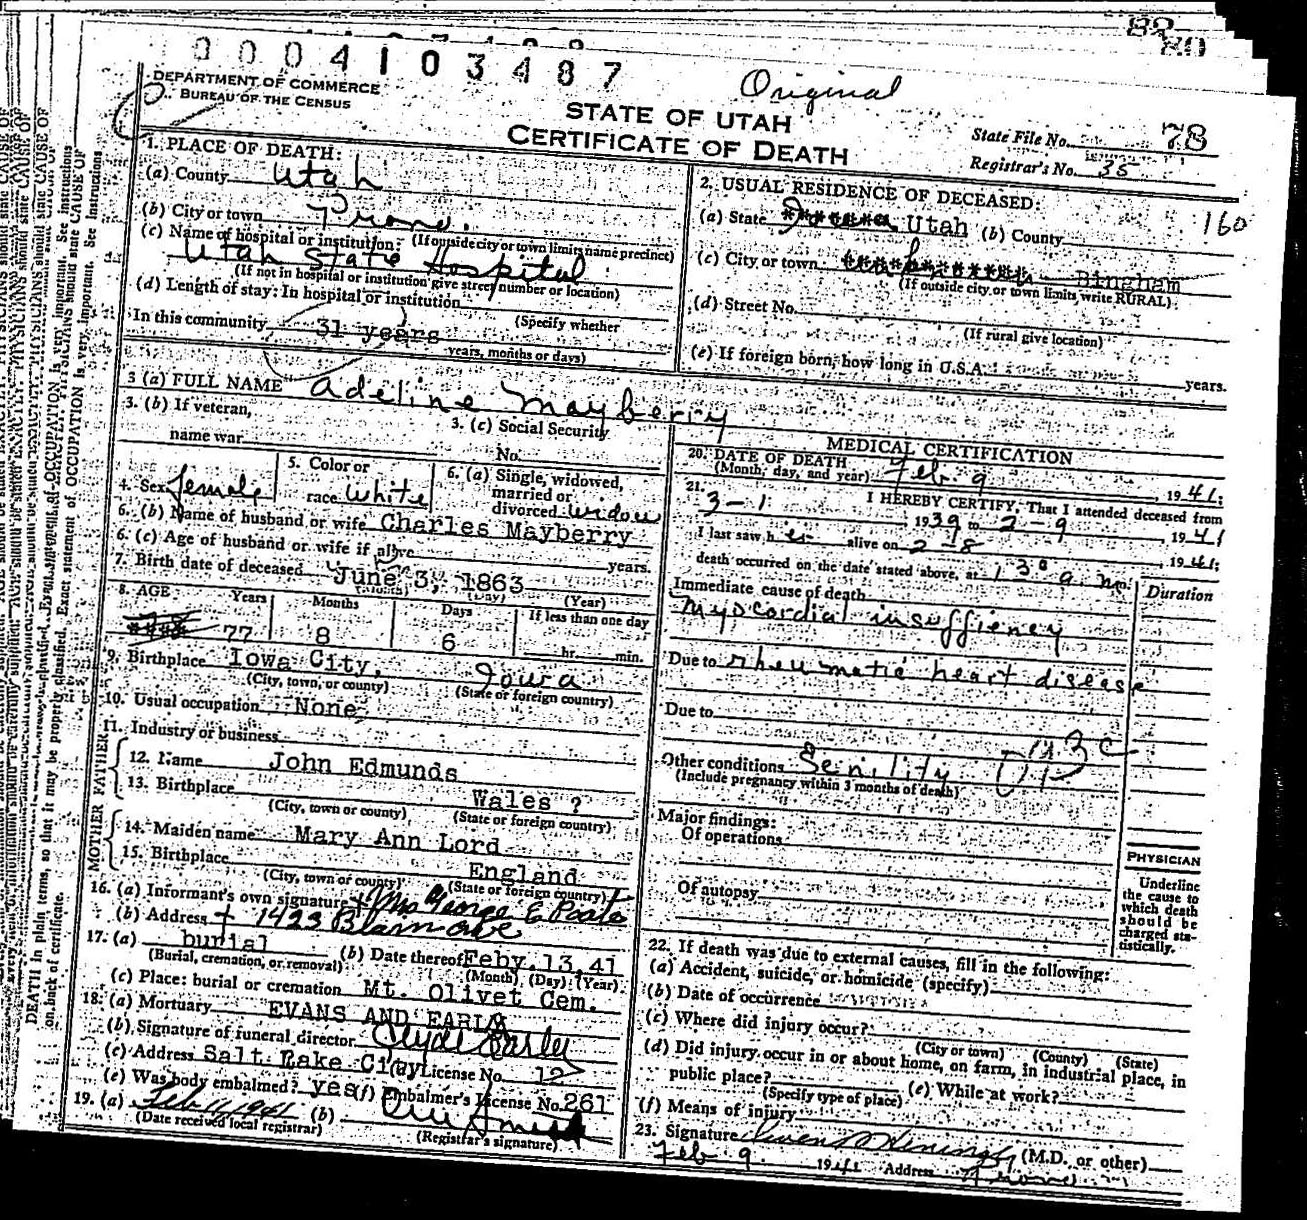 0004103487
Original
DEPARTMENT OF COMMERCE
BUREAU OF THE CENSUS
STATE OF UTAH
CERTIFICATE OF DEATH
State File No. 78
Registrar's No. 35
1. PLACE OF DEATH:
(a) County Utah
(b) City or town Provo.
(c) Name of hospital or institution: (If outside city or town limits name precinct)
Utah State Hospital
(If not in hospital or institution give street number or location)
(d) Length of stay: In hospital or institution
(Specify whether
In this community 31 years
years, months or days)
2. USUAL RESIDENCE OF DECEASED:
160
(a) State Utah (b) County
(c) City or town Bingham
(If outside city or town limits write RURAL)
(d) Street No.
(If rural give location)
(e) If foreign born, how long in U.S.A. years.
3 (a) FULL NAME Adeline Mayberry
3. (b) If veteran,
name war
3. (c) Social Security
No.
4. Sex female
5. Color or
race White
6. (a) Single, widowed,
married or
divorced widow
6. (b) Name of husband or wife Charles Mayberry
6. (c) Age of husband or wife if alive years.
7. Birth date of deceased June 3, 1863
(Month) (Day) (Year)
8. AGE Years Months Days If less than one day
77 8 6 hr. min.
9. Birthplace Iowa City, Iowa
(City, town, or county) (State or foreign country)
10. Usual occupation None
11. Industry or business
FATHER
12. Name John Edmunds
13. Birthplace Wales ?
(City, town or county) (State or foreign country)
MOTHER
14. Maiden name Mary Ann Lord
15. Birthplace England
(City, town or county) (State or foreign country)
16. (a) Informant's own signature Mrs George E
(b) Address 1423 Ave
17. (a) burial (b) Date thereof Feby. 13, 41
(Burial, cremation, or removal) (Month) (Day) (Year)
(c) Place: burial or cremation Mt. Olivet Cem.
18. (a) Mortuary EVANS AND EARLY
(b) Signature of funeral director Clyde Earley
(c) Address Salt Lake City (d) License No. 12
(e) Was body embalmed? yes (f) Embalmer's License No. 261
19. (a) Feb 11, 1941 (b)
(Date received local registrar) (Registrar's signature)
MEDICAL CERTIFICATION
20. DATE OF DEATH
(Month, day, and year) Feb. 9, 1941;
21. I HEREBY CERTIFY, That I attended deceased from
3-1 1939 to 2-9, 1941
I last saw her alive on 2-8, 1941;
death occurred on the date stated above, at 1 30 a. m.
Immediate cause of death Duration
Myocordial insuffiency
Due to rheumatic heart disease
Due to
Other conditions Senility
(Include pregnancy within 3 months of death)
Major findings:
Of operations
Of autopsy
PHYSICIAN
Underline
the cause to
which death
should be
charged sta-
tistically.
22. If death was due to external causes, fill in the following:
(a) Accident, suicide, or homicide (specify)
(b) Date of occurrence
(c) Where did injury occur?
(City or town) (County) (State)
(d) Did injury occur in or about home, on farm, in industrial place, in
public place? (e) While at work?
(Specify type of place)
(f) Means of injury
23. Signature (M.D. or other)
Feb 9 1941 Address Provo